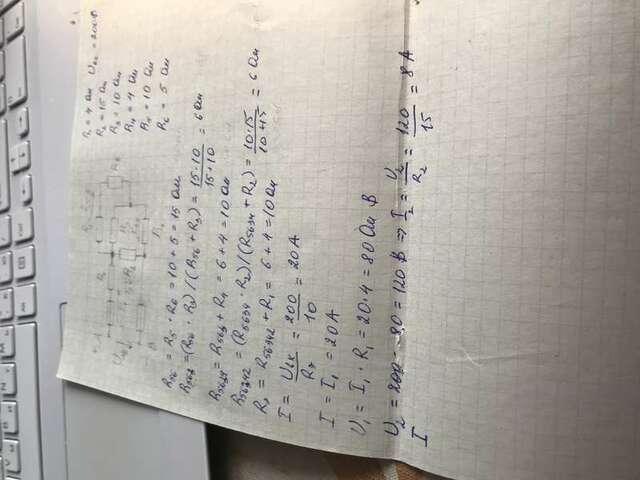 + A
R₂
R₆
- B
R₁ = 4 Ом Uвх = 200 В
R₂ = 15 Ом
R₃ = 10 Ом
R₄ = 4 Ом
R₅ = 10 Ом
R₆ = 5 Ом
R₅₆ = R₅ · R₆ = 10 + 5 = 15 Ом
R₅₆₃ = (R₅₆ · R₃) / (R₅₆ + R₃) = 15·10 / 15+10 = 6 Ом
R₅₆₃₄ = R₅₆₃ + R₄ = 6 + 4 = 10 Ом
R₅₆₃₄₂ = (R₅₆₃₄ · R₂) / (R₅₆₃₄ + R₂) = 10·15 / 10+15 = 6 Ом
Rэ = R₅₆₃₄₂ + R₁ = 6 + 4 = 10 Ом
I = Uвх / Rэ = 200 / 10 = 20 А
I = I₁ = 20 А
U₁ = I₁ · R₁ = 20 · 4 = 80 Ом В
U₂ = 200 - 80 = 120 В => I₂ = U₂ / R₂ = 120 / 15 = 8 А
I